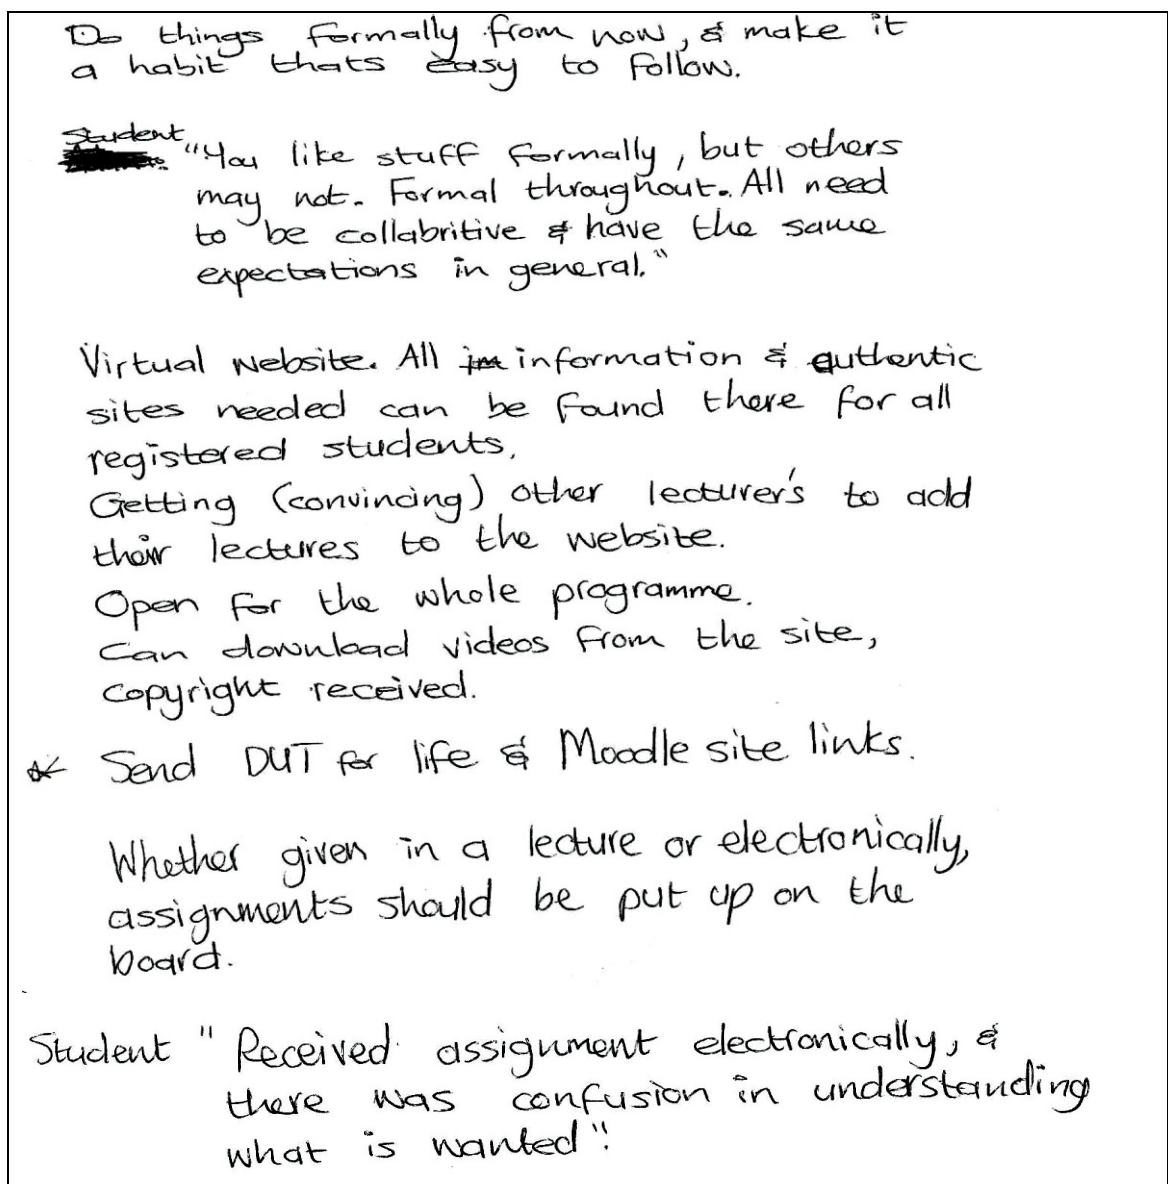 Do things formally from now, & make it
a habit thats easy to follow.
Student "You like stuff formally, but others
may not. Formal throughout. All need
to be collabritive & have the same
expectations in general."
Virtual website. All im information & authentic
sites needed can be found there for all
registered students.
Getting (convincing) other lecturer's to add
their lectures to the website.
Open for the whole programme.
Can download videos from the site,
copyright received.
* Send DUT for life & Moodle site links.
Whether given in a lecture or electronically,
assignments should be put up on the
board.
Student "Received assignment electronically, &
there was confusion in understanding
what is wanted".